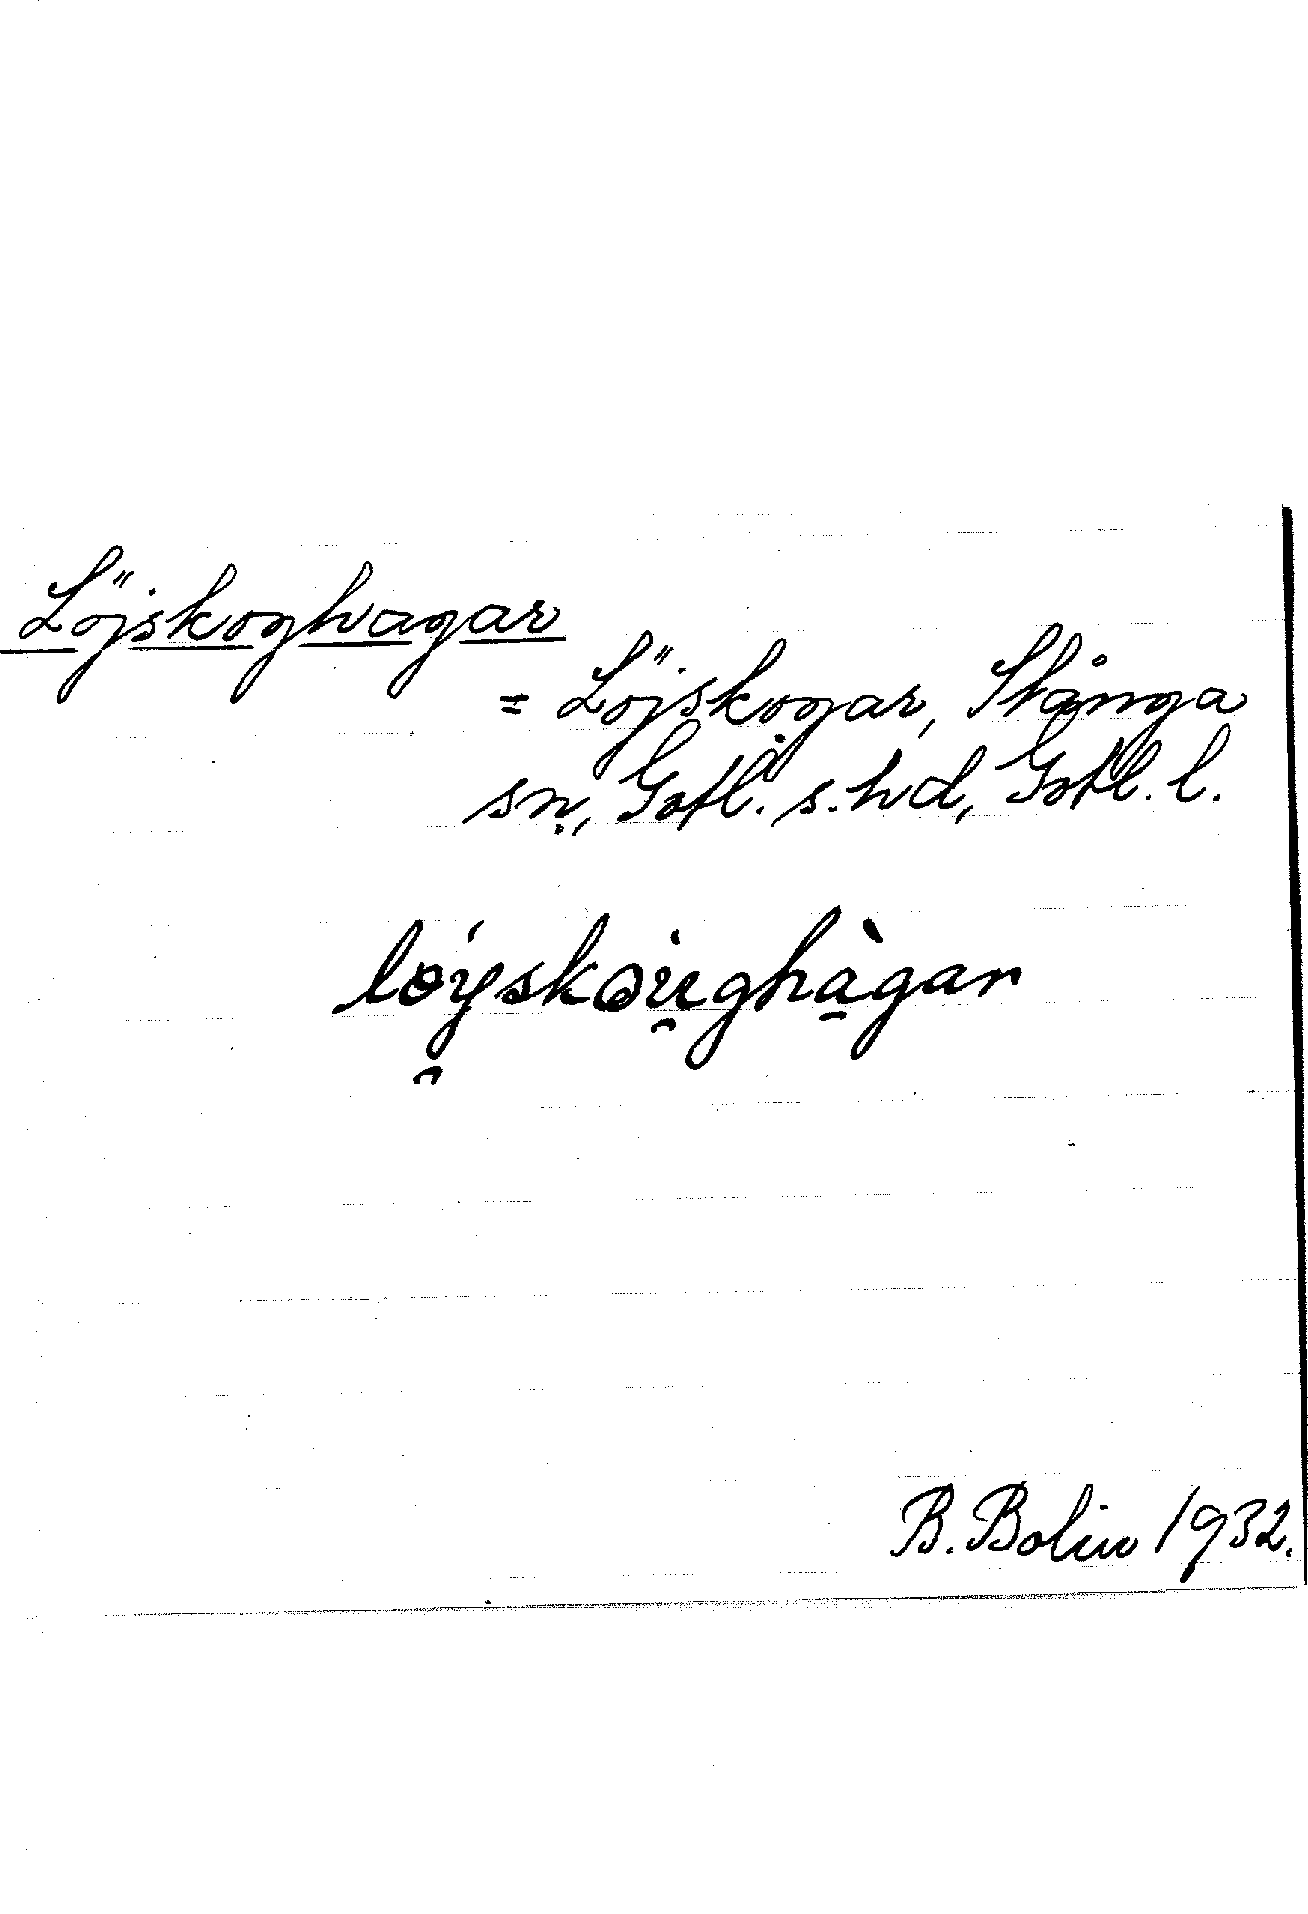 Löjskoghagar
= Löjskogar, Stånga
sn, Gotl. s. hd, Gotl. l.
löy̯skòu̯ghàgar
B. Bolin 1932.